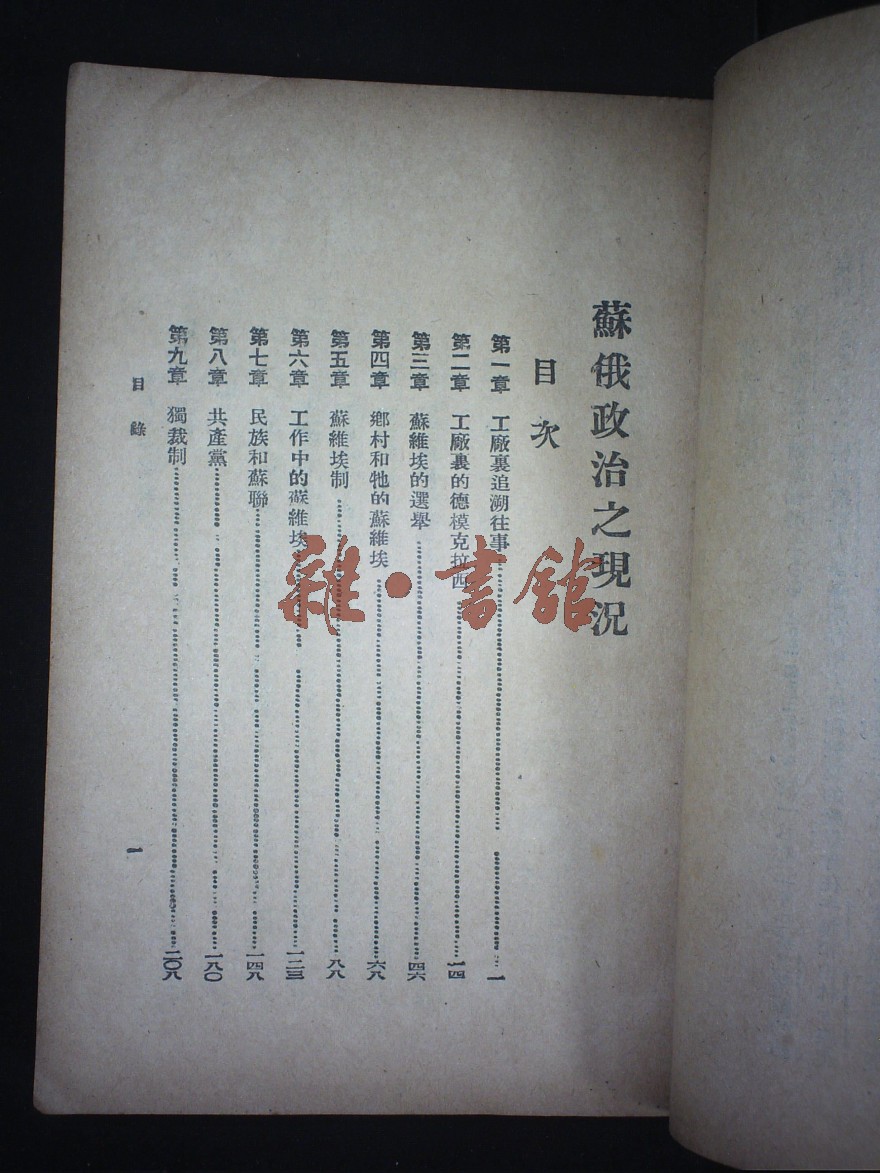 蘇俄政治之現況
目次
第一章 工廠裏追溯往事 一
第二章 工廠裏的德模克拉西 一四
第三章 蘇維埃的選舉 四六
第四章 鄉村和牠的蘇維埃 六八
第五章 蘇維埃制 八八
第六章 工作中的蘇維埃 一二三
第七章 民族和蘇聯 一四八
第八章 共產黨 一八〇
第九章 獨裁制 二〇八
目錄
一
雜·書館